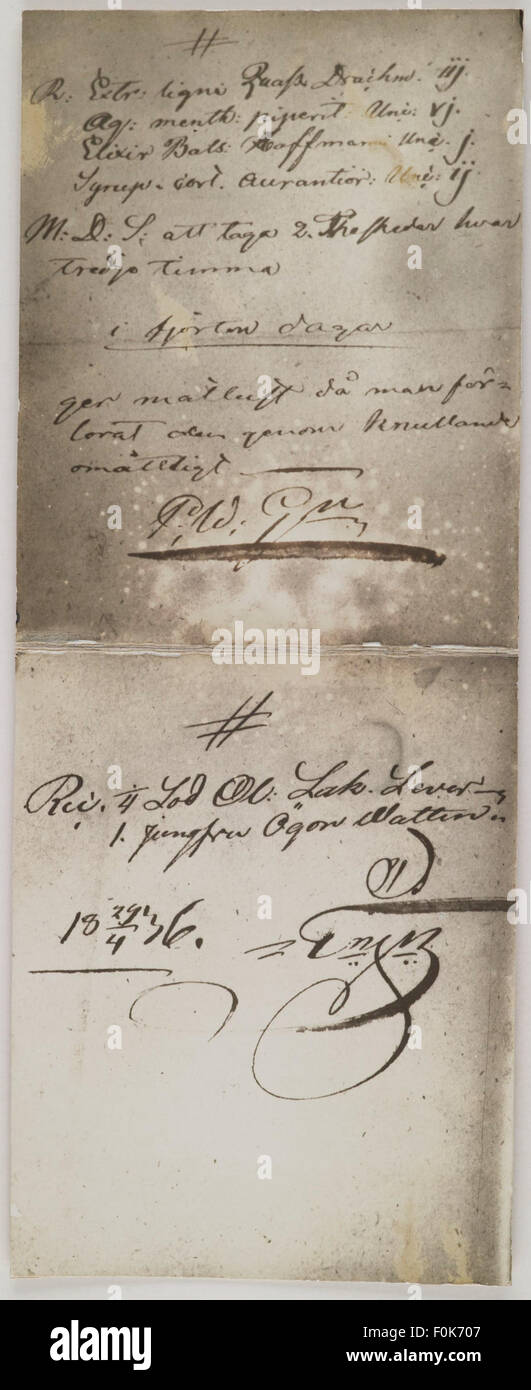 #
R: Extr: ligni Quass Drachm: iij.
Aq: menth: piperit: Unc: vj.
Elixir Bals: Hoffmanni Unc. j.
Syrup. cort. aurantior: Unc: ij.
M: D: S: att taga 2. Theskedar hvar
tredje timma
i fjorton dagar
ger matlust då man för=
lorat den genom knullande
omåttligt
#
Rec. 1/4 Lod Ol: Lak. Lever
1. jungfru Ögon Watten
18 29/4 36.
a alamy stock photo
alamy
Image ID: F0K707
www.alamy.com